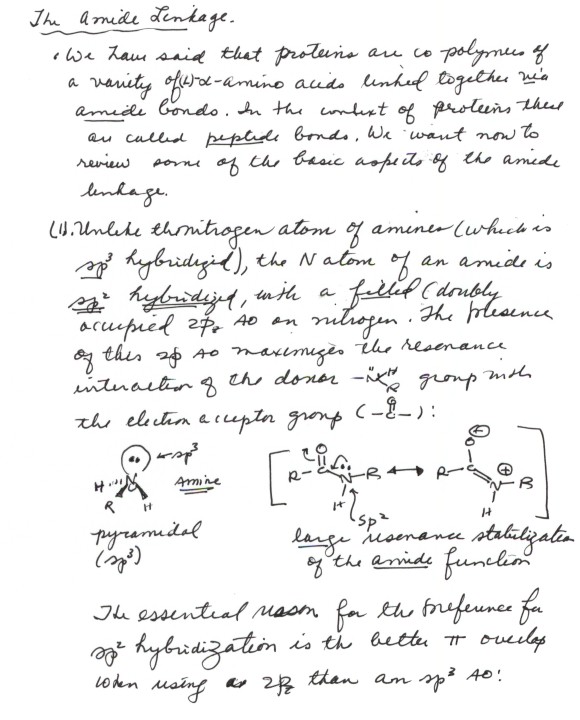 The Amide Linkage.
• We have said that proteins are copolymers of
a variety of (L)-α-amino acids linked together via
amide bonds. In the context of proteins these
are called peptide bonds. We want now to
review some of the basic aspects of the amide
linkage.
(1). Unlike the nitrogen atom of amines (which is
sp³ hybridized), the N atom of an amide is
sp² hybridized, with a filled (doubly
occupied 2p_z AO on nitrogen. The presence
of this 2p AO maximizes the resonance
interaction of the donor -N̈ H R group with
the electron acceptor group (-C(=O)-):
sp³ Amine H R H N
R-C(=O)-N̈(H)-R ↔ R-C(-O⊖)=N⊕(H)-R
sp²
pyramidal large resonance stabilization
(sp³) of the amide function
The essential reason for the preference for
sp² hybridization is the better π overlap
when using a 2p_z than an sp³ AO: